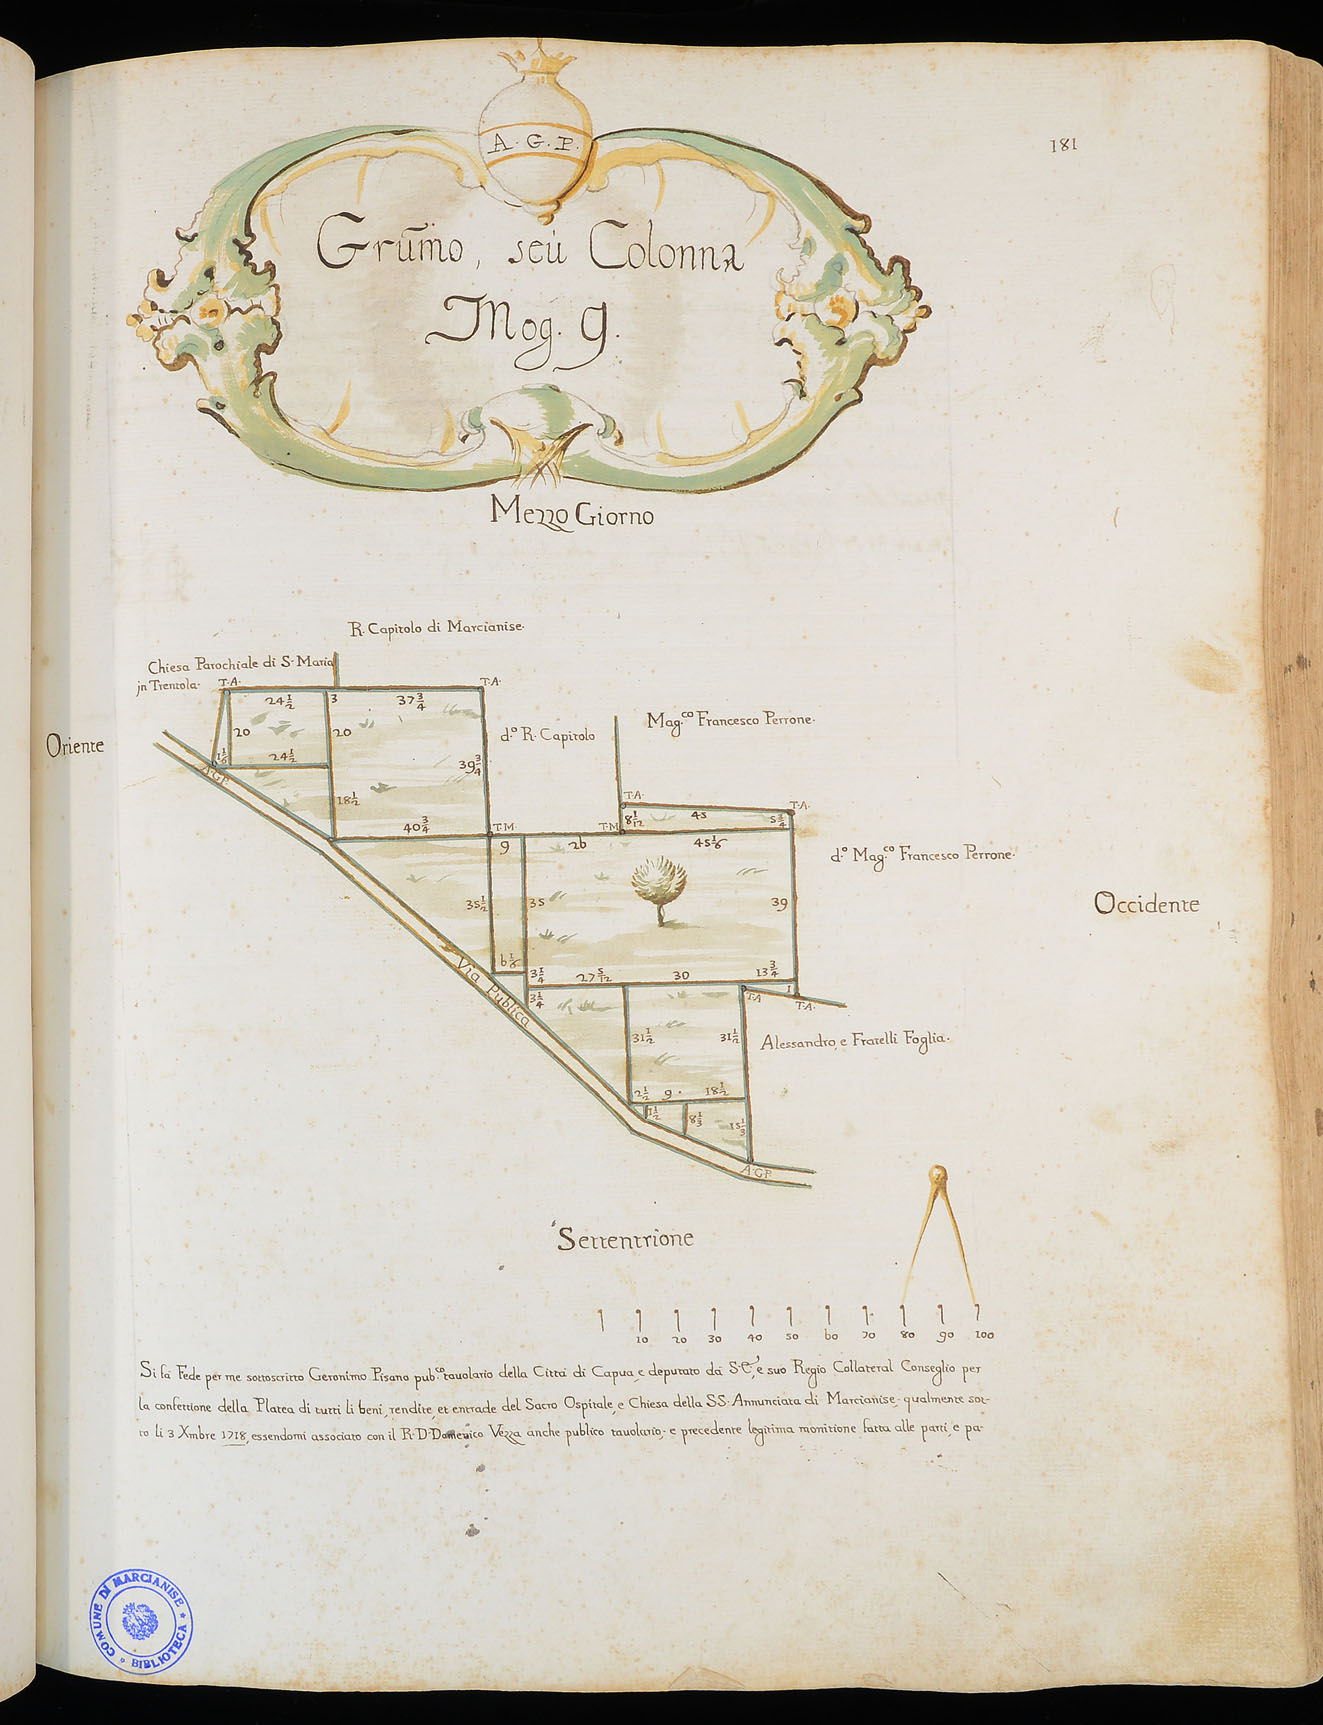 A. G. P.
181
Grum̃o, seù Colonna
Mog. 9.
Mezzo Giorno
R. Capitolo di Marcianise.
Chiesa Parochiale di S. Maria
jn Trentola.
T.A.
T.A.
24 1/2
3
37 3/4
20
20
Oriente
d.º R. Capitolo
Mag.co Francesco Perrone.
1 1/6
24 1/2
39 3/4
A.G.P.
18 1/2
T.A.
T.A.
8 1/12
45
5 3/4
40 3/4
T.M.
T.M.
9
26
45 1/6
d.º Mag.co Francesco Perrone.
35 1/2
35
39
Occidente
6 1/6
3 1/4
27 5/12
30
13 3/4
Via Publica
3 1/4
T.A.
1
T.A.
31 1/2
31 1/2
Alessandro, e Fratelli Foglia.
2 1/2
9.
18 1/2
1 1/2
8 1/3
15 1/3
A.G.P.
Settentrione
10 20 30 40 50 60 70 80 90 100
Si fà Fede per me sottoscritto Geronimo Pisano pub.co tavolario della Città di Capua, e deputato da S. E., e suo Regio Collateral Conseglio per
la confettione della Platea di tutti li beni, rendite, et entrade del Sacro Ospitale, e Chiesa della SS. Annunciata di Marcianise, qualmente sot-
to li 3 Xmbre 1718, essendomi associato con il R. D. Domenico Vezza anche publico tavolario, e precedente legitima monitione fatta alle parti, e pa-
COMUNE DI MARCIANISE * BIBLIOTECA *